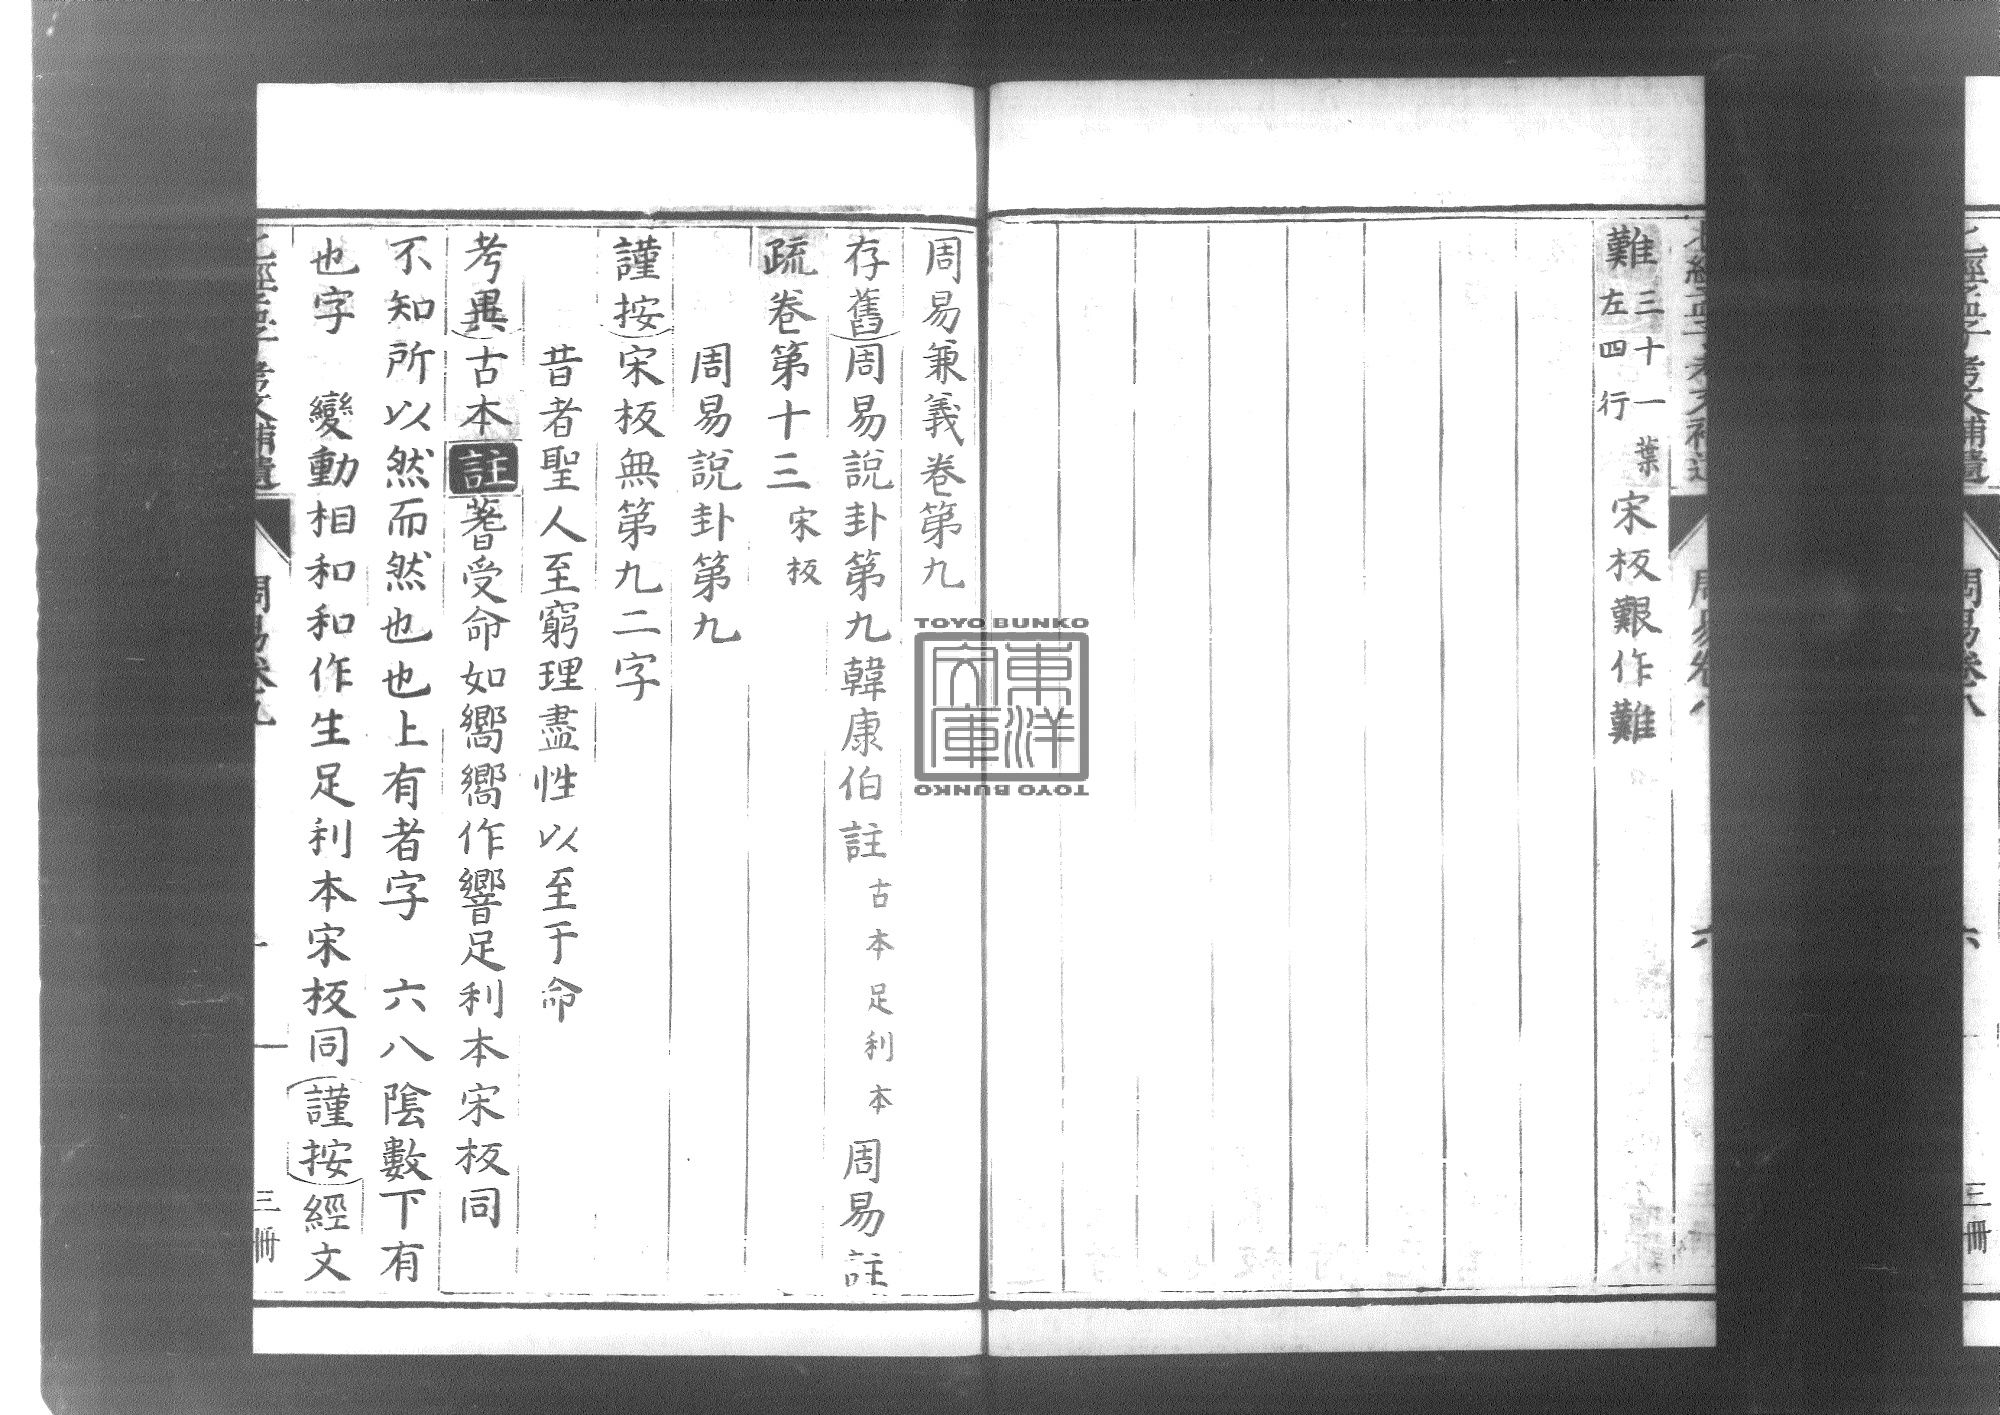 難三十一葉左四行宋板艱作難
周易兼義卷第九
存舊周易說卦第九韓康伯註古本足利本周易註
疏卷第十三宋板
周易說卦第九
謹按宋板無第九二字
昔者聖人至窮理盡性以至于命
考異古本註蓍受命如嚮嚮作響足利本宋板同
不知所以然而然也也上有者字　六八陰數下有
也字　變動相和和作生足利本宋板同謹按經文
三冊
TOYO BUNKO
東洋文庫
TOYO BUNKO